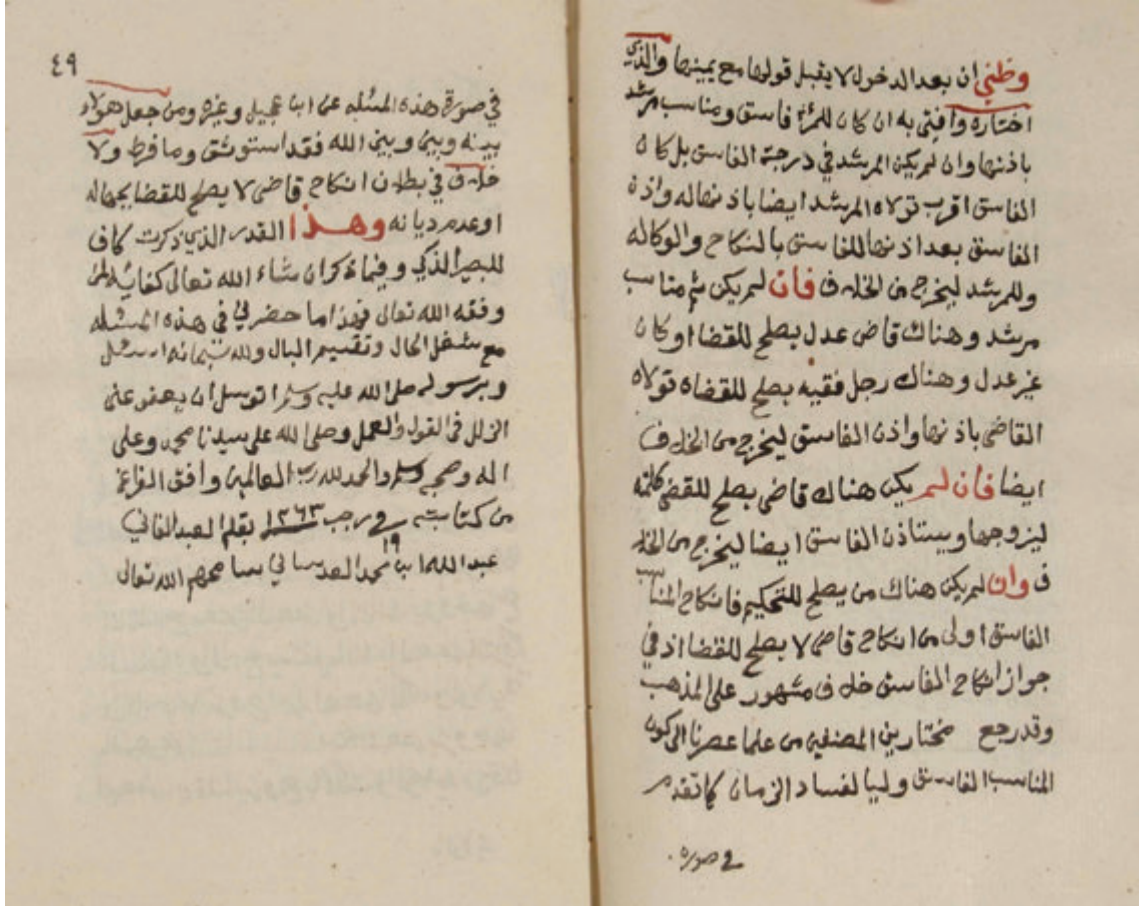 وظني ان بعد الدخول لا يقبل قولها مع يمينها والذي
اختاره وافتي به ان كان للمرأة فاسق ومناسب مرشد
باذنها وان لم يكن المرشد في درجة الفاسق بل كان
الفاسق اقرب تولاه المرشد ايضا باذنها له واذن
الفاسق بعد اذنها للفاسق بالنكاح والوكاله
وللمرشد ليخرج من الخلاف فان لم يكن ثم مناسب
مرشد وهناك قاض عدل يصلح للقضا او كان
غير عدل وهناك رجل فقيه يصلح للقضاء تولاه
القاضي باذنها واذن الفاسق ليخرج من الخلاف
ايضا فان لم يكن هناك قاضي يصلح للقضى
ليزوجها ويستاذن الفاسق ايضا ليخرج من الخلا
ف وان لم يكن هناك من يصلح للتحكيم فانكاح المناسب
الفاسق اولى من انكاح قاضي لا يصلح للقضا اذ في
جواز انكاح الفاسق خلاف مشهور على المذهب
وقد رجع مختارين المصنفين من علما عصرنا الى كون
المناسب الفاسق وليا لفساد الزمان كما تقدم
في صورة
٤٩
في صورة هذه المسئله عن ابن عجيل وغيره ومن جعل هولاء
بينه وبين الله فقد استوثق وما فرط ولا
خلاف في بطلان انكاح قاضي لا يصلح للقضا بجهاله
او عدم ديانه وهذا القدر الذي ذكرت كاف
للبصير الذكي وفيما ذكر ان شاء الله تعالى كفايه لمن
وفقه الله تعالى فهذا ما حضر لي في هذه المسئله
مع شغل الحال وتقسيم البال والله سبحانه اسئل
وبرسوله صلى الله عليه وسلم اتوسل ان يعفو عني
الزلل في القول والعمل وصلى الله على سيدنا محمد وعلى
اله وصحبه وسلم والحمد لله رب العالمين وافق الفراغ
من كتابته في ١٩ رجب ١٢٦٣ بقلم العبد الفاني
عبد الله ابن محمد سامحهم الله تعالى